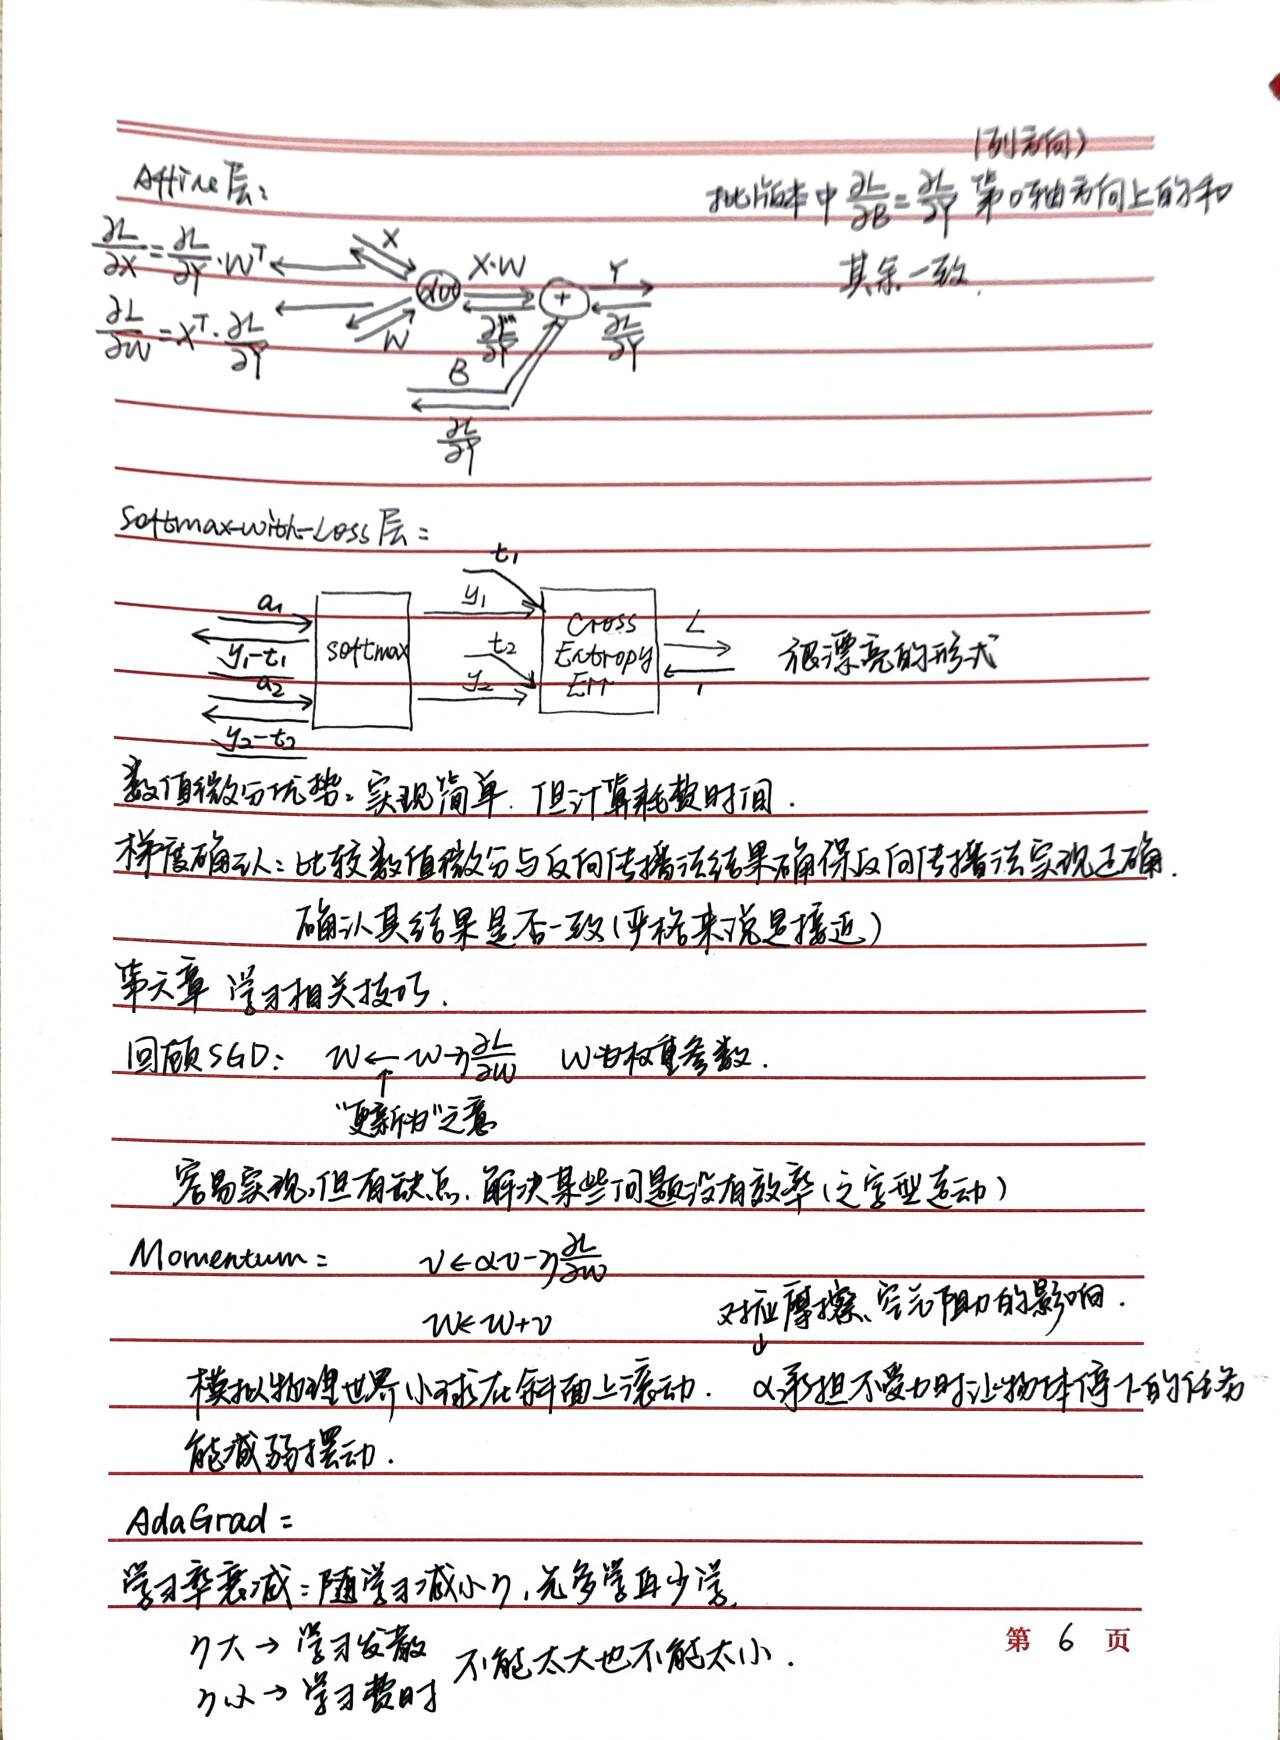 (列方向)
Affine层:
批版本中 ∂L/∂B = ∂L/∂Y 第0轴方向上的和
其余一致.
∂L/∂X = ∂L/∂Y · W^T
X
dot
X·W
+
Y
∂L/∂W = X^T · ∂L/∂Y
W
∂L/∂Y
∂L/∂Y
B
∂L/∂Y
Softmax-with-Loss层:
t₁
a₁
y₁
y₁-t₁
softmax
t₂
Cross
Entropy
Err
L
1
很漂亮的形式
a₂
y₂
y₂-t₂
数值微分优势:实现简单.但计算耗费时间.
梯度确认:比较数值微分与反向传播法结果确保反向传播法实现正确.
确认其结果是否一致(严格来说是接近)
第六章 学习相关技巧.
回顾SGD: W ← W-η ∂L/∂W W为权重参数.
↑
"更新为"之意
容易实现,但有缺点.解决某些问题没有效率(之字型运动)
Momentum: v←αv-η ∂L/∂W
W←W+v
对应摩擦、空气阻力的影响.
↓
模拟物理世界小球在斜面上滚动. α承担不受力时让物体停下的任务
能减弱摆动.
AdaGrad:
学习率衰减:随学习减小η,先多学再少学.
η大→学习发散
η小→学习费时
不能太大也不能太小.
第 6 页